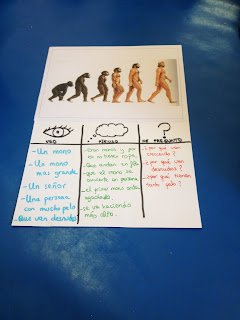 VEO
PIENSO
ME PREGUNTO
- Un mono
- Un mono
más grande
- Un señor
- Una persona
con mucho pelo
- Que van desnudos
- Eran monos y por
eso no tienen ropa.
- Que andan en fila
- que el mono se
convierte en persona
- El primer mono está
agachado.
- se va haciendo
más alto.
- ¿Por qué van
creciendo?
- ¿por qué van
desnudos?
- ¿por qué tienen
tanto pelo?